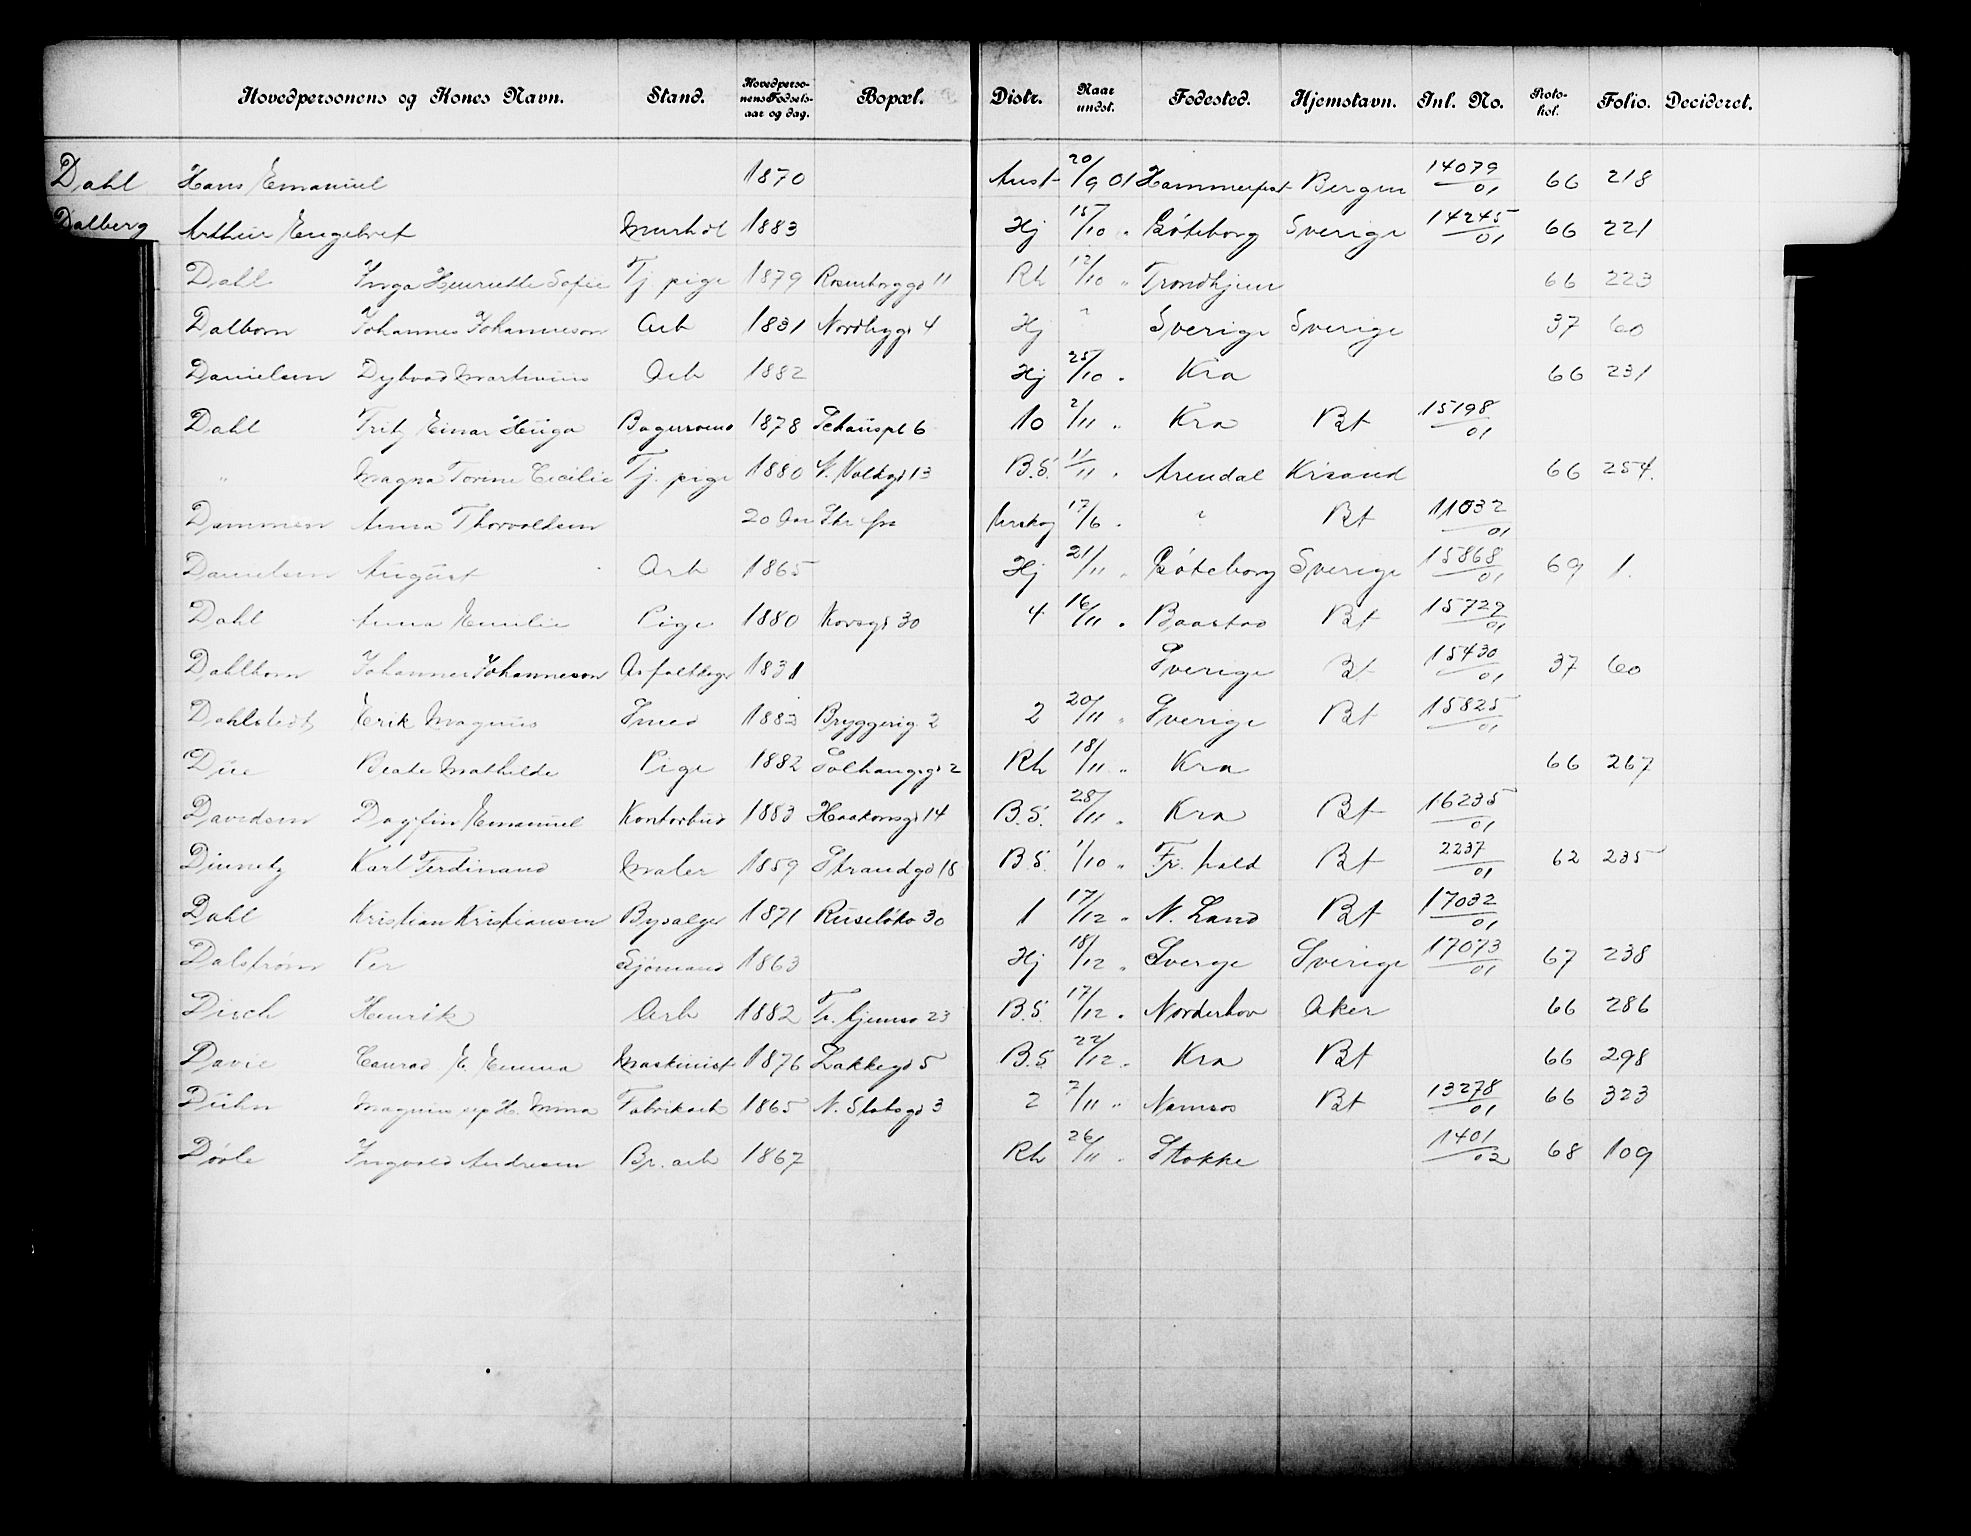 Hovedpersonens og Kones Navn. Stand. Hovedperso-nens Fødsels-aar og dag. Bopæl. Distr. Naar undst. Fødested. Hjemstavn. Inl. No. Proto-kol. Folio. Decideret.
Dahl Hans Emanuel 1870 Aust 20/9 01 Hammerfest Bergen 14079/01 66 218
Dalberg Arthur Engebret Murhdl 1883 Hj 15/10 " Göteborg Sverige 14245/01 66 221
Dahl Inga Henriette Sofie Tj. pige 1879 Rosenborggd 11 Rh 12/10 " Trondhjem 66 223
Dalborn Johannes Johanneson Arb 1831 Nordbygd 4 Hj " Sverige Sverige 37 60
Danielsen Dybvad Martinius Arb 1882 Hj 25/10 " Kra 66 231
Dahl Fritz Einar Hugo Bagersvend 1878 Schouspl 6 10 2/11 " Kra Bt 15198/01
" Magna Torine Cecilie Tj. pige 1880 N. Voldgd 13 B.S. 11/11 " Arendal Krisand 66 254.
Dammen Anna Thorvaldsen 20 Aar Str. fra 17/6 " Bt 11032/01
Danielsen August Arb 1865 Hj 21/11 " Göteborg Sverige 15868/01 69 1.
Dahl Anna Emilie Pige 1880 Korsgd 30 4 16/11 " Baastad Bt 15729/01
Dahlborn Johannes Johanneson Asfaltlægr 1831 Sverige Bt 15430/01 37 60
Dahlstedt Erik Magnus Smed 1882 Bryggerig 2 2 20/11 " Sverige Bt 15825/01
Due Beate Mathilde Pige 1882 Solhaugsgd 2 Rh 18/11 " Kra 66 267
Davidsen Dagfin Emanuel Kontorbud 1883 Haakonsgd 14 B.S. 28/11 " Kra Bt 16235/01
Karl Ferdinand Maler 1859 Strandgd 18 B.S. 1/10 " Fr. hald Bt 2237/01 62 235
Dahl Kristian Kristiansen Bysælger 1871 Ruseløkv 30 1 17/12 " N. Land Bt 17032/01
Dalstrøm Per Sjømand 1863 Hj 18/12 " Sverge Sverige 17073/01 67 238
Disch Henrik Arb 1882 Tr. hjemsv 23 B.S. 17/12 " Norderhov Aker 66 286
Davie Conrad E. Emma Maskinist 1876 Lakkegd 5 B.S. 22/12 " Kra Bt 66 298
Duhn Magnus H. Mina Fabrikarb 1865 N. Slotsgd 3 2 7/11 " Namsos Bt 13278/01 66 323
Døvle Ingvald Andresen Br. arb 1867 Rh 26/11 " Stokke 1401/02 68 109